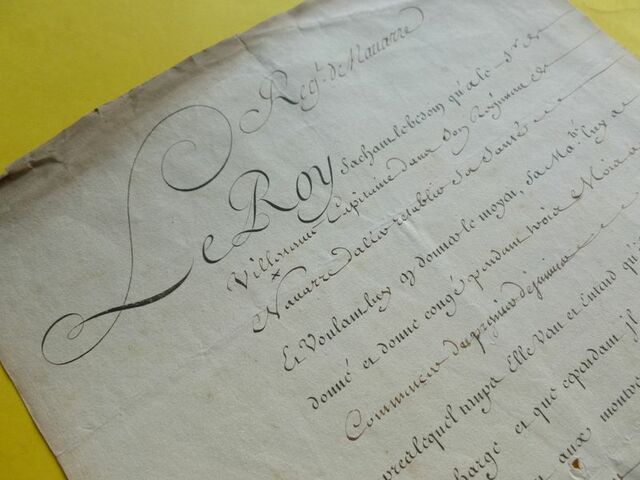 Reg.^t de Nauarre
Le Roy Sachant le besoin qu'a le S.^r de
Villonoue Capitaine dans Son Régiment de
Nauarre d'aller rétablir Sa Santé
Et Voulant luy y donner le moyen, Sa Ma.^té luy a
donné et donne congé pendant trois Mois a
Commencer du premier de januier
apres lequel temps Elle Veut et Entend qu'il
charge et que cependant jl
aux montres